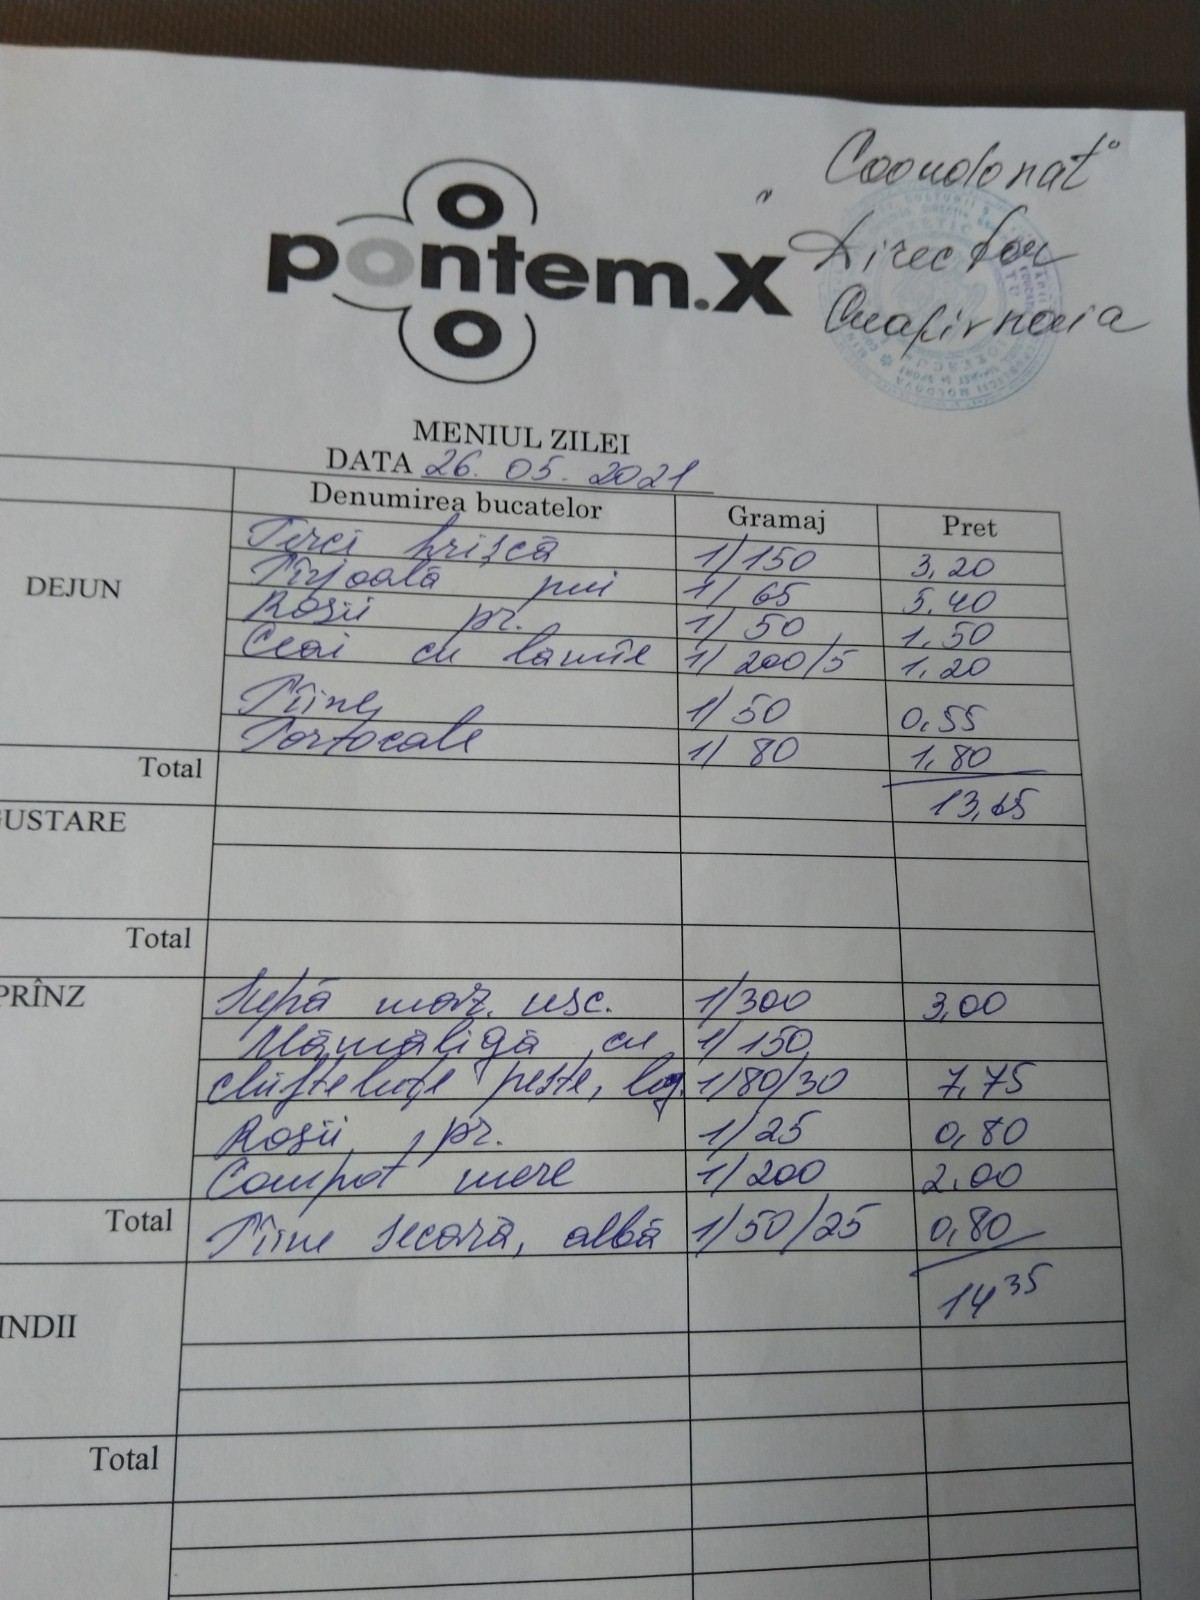 "Coordonat"
pontem.X
Director
MENIUL ZILEI
DATA 26. 05. 2021
Denumirea bucatelor Gramaj Pret
DEJUN
Terci hrișcă 1/150 3,20
Pîrjoală pui 1/65 5,40
Roșii pr. 1/50 1,50
Ceai cu lamîe 1/200/5 1,20
Pîine 1/50 0,55
Portocale 1/80 1,80
Total 13,65
GUSTARE
Total
PRÎNZ
Supă maz. usc. 1/300 3,00
Mămăligă cu 1/150
chifteluțe pește, leg. 1/80/30 7,75
Roșii, pr. 1/25 0,80
Compot mere 1/200 2,00
Total Pîine secară, albă 1/50/25 0,80
14 35
INDII
Total